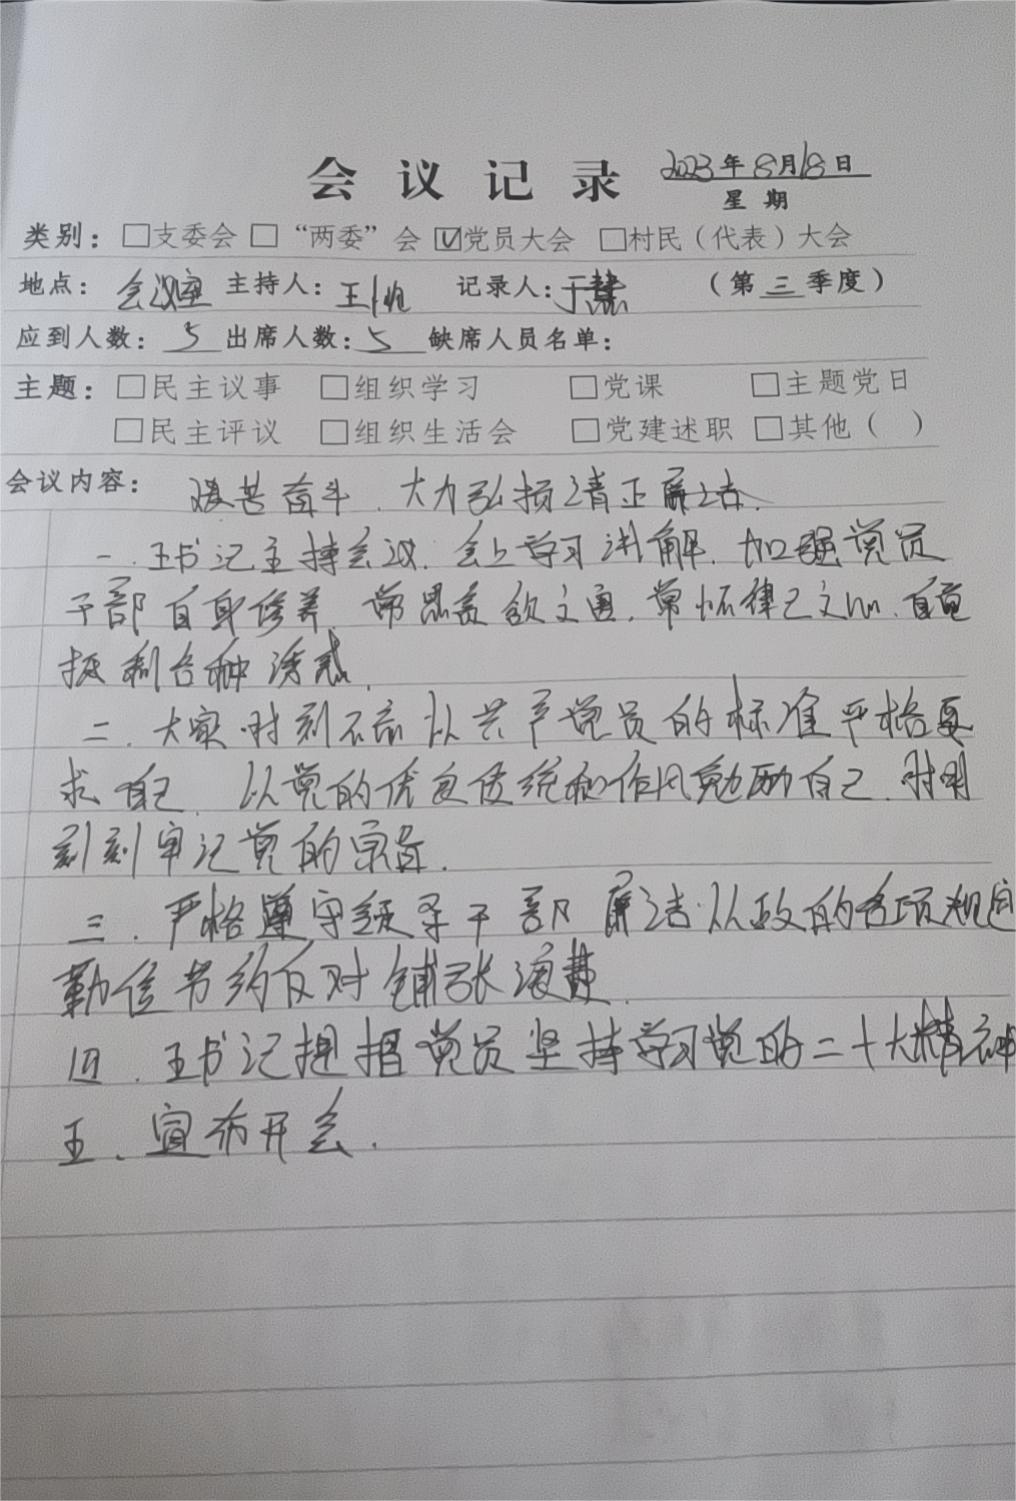 会议记录 2023年8月18日
星期
类别：□支委会 □“两委”会 ☑党员大会 □村民（代表）大会
地点：会议室 主持人：王 记录人：于慧 （第三季度）
应到人数：5 出席人数：5 缺席人员名单：
主题：□民主议事 □组织学习 □党课 □主题党日
□民主评议 □组织生活会 □党建述职 □其他（ ）
会议内容： 艰苦奋斗.大力弘扬清正廉洁.
一.王书记主持会议.会上学习讲解.加强党员
干部自身修养.常思贪欲之害.常怀律己之心.自觉
抵制各种诱惑.
二.大家时刻不忘以共产党员的标准严格要
求自己.以党的优良传统和作风勉励自己.时时
刻刻牢记党的宗旨.
三.严格遵守领导干部廉洁从政的各项规定
勤俭节约反对铺张浪费.
四.王书记提招党员坚持学习党的二十大精神
五.宣布开会.